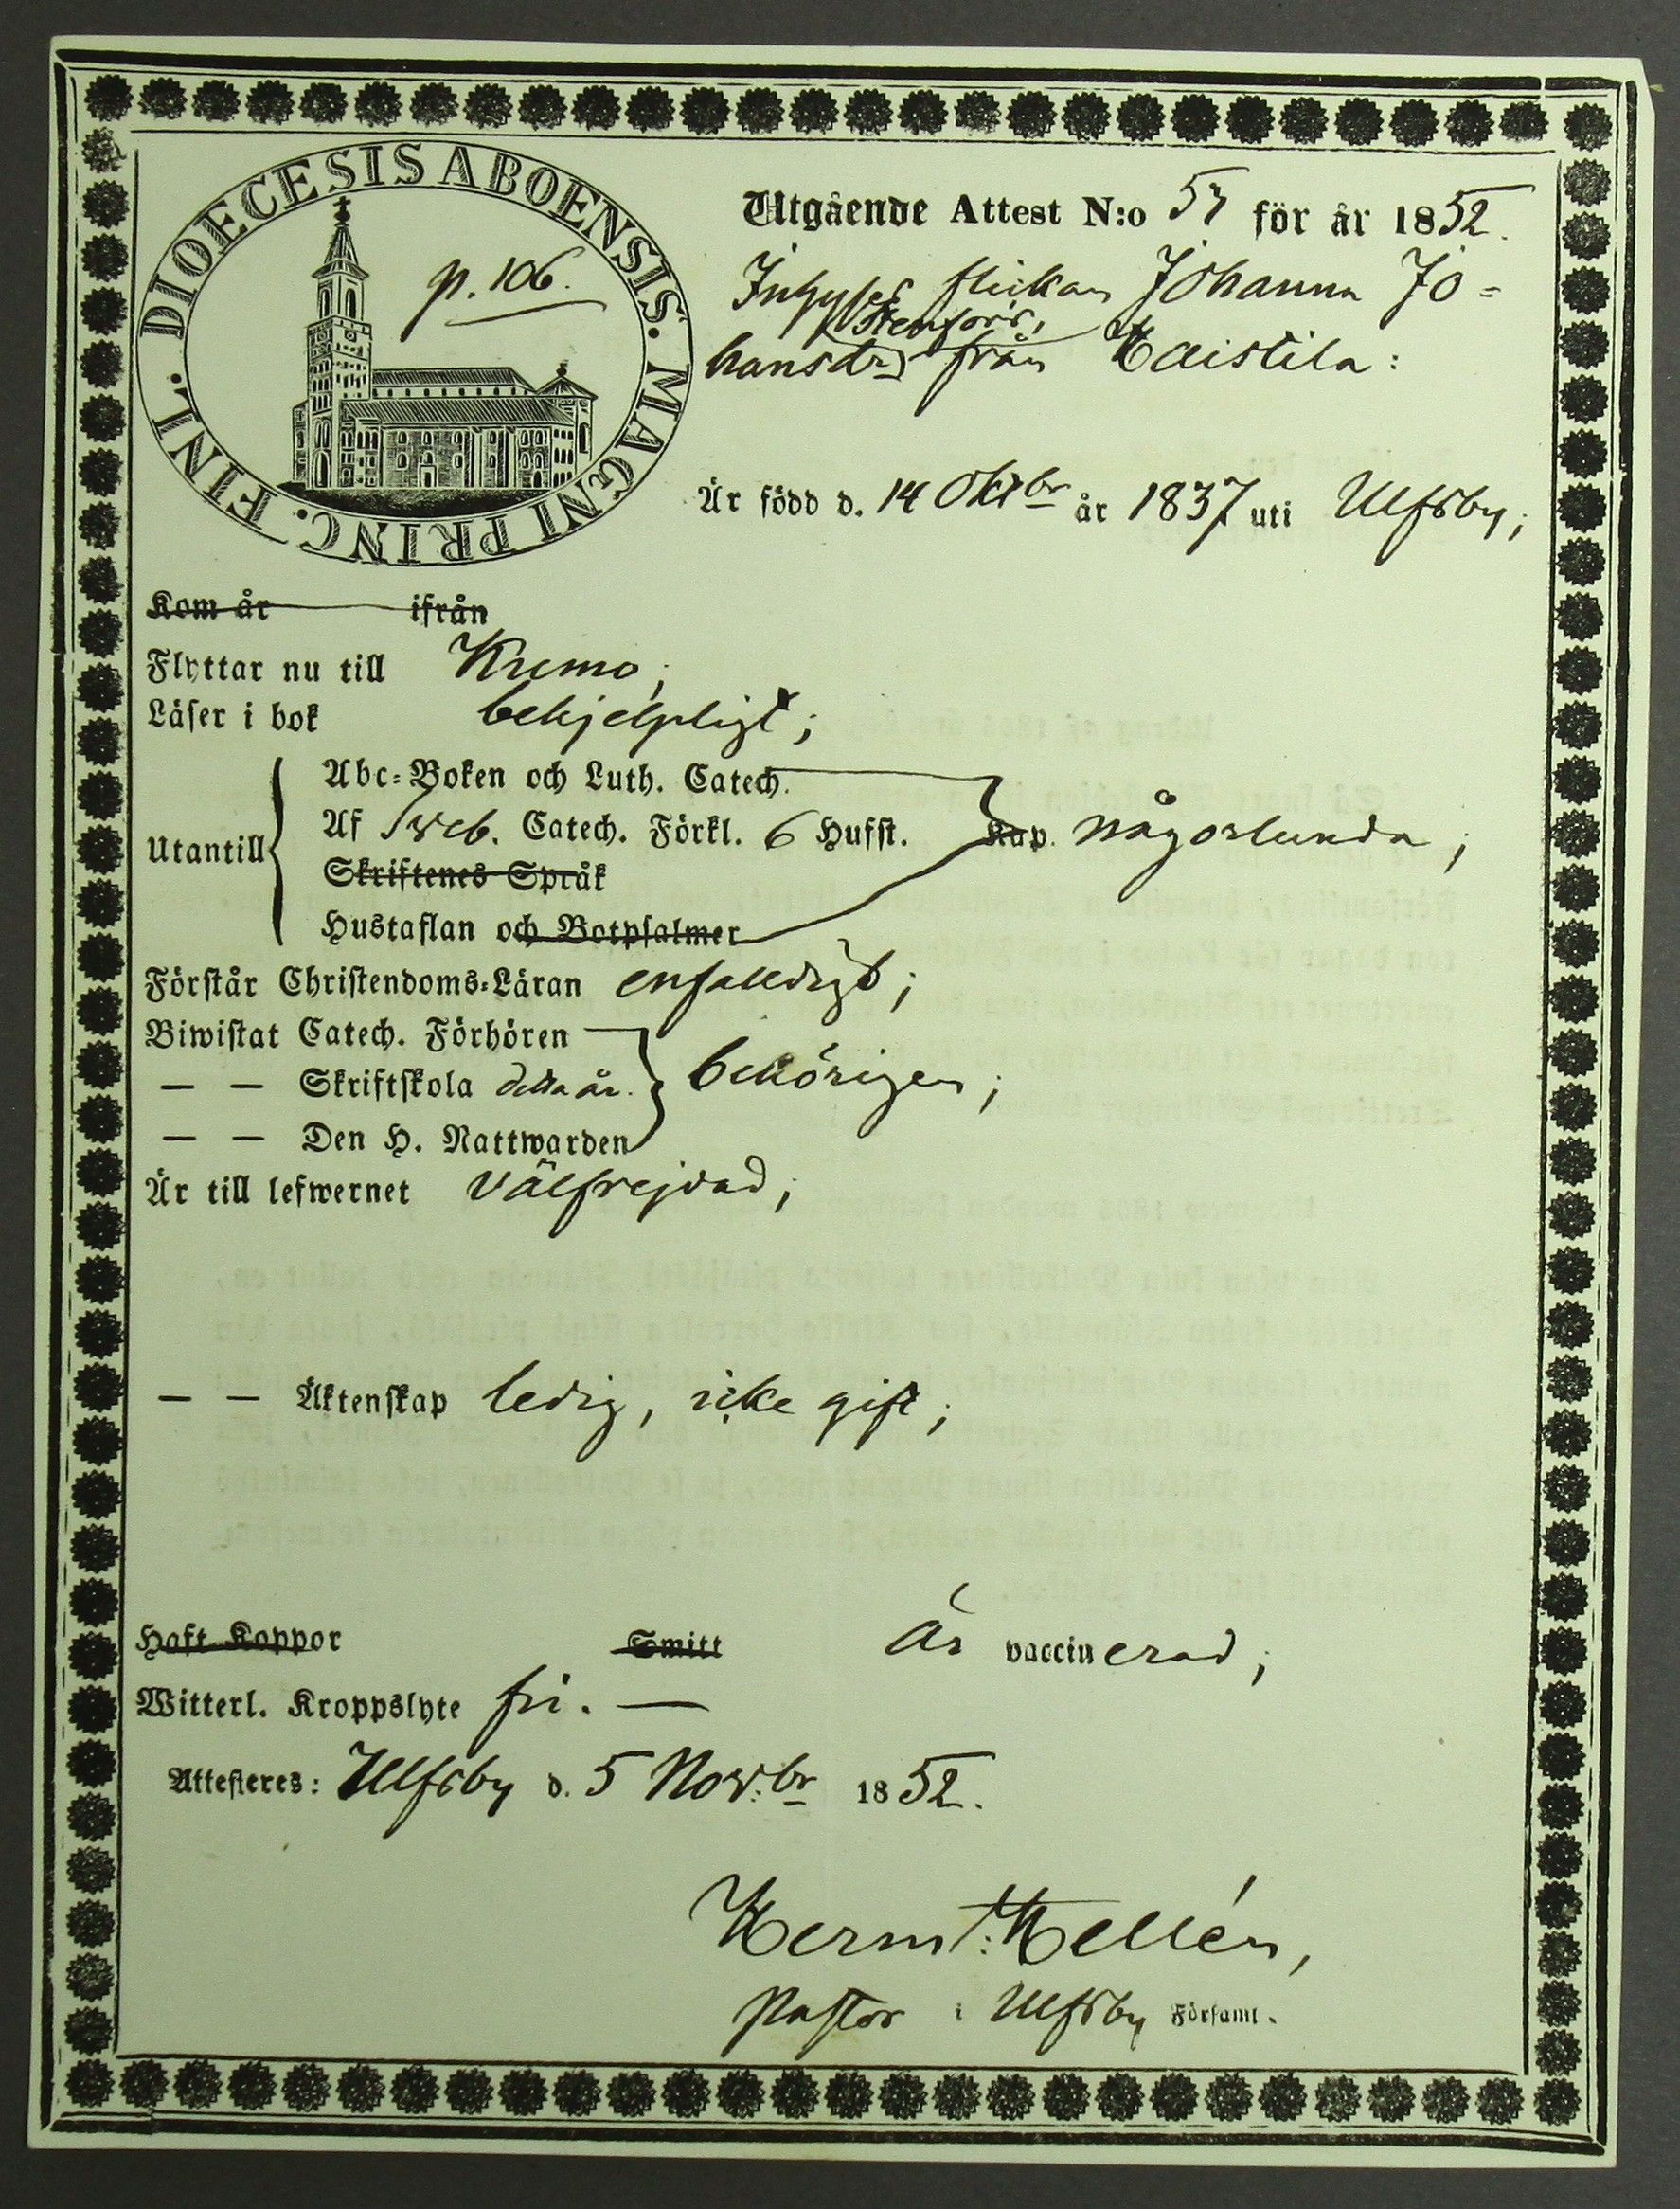 DIOECESIS ABOENSIS. MAGNI PRINC. FINL.
p. 106.
Utgående Attest N:o 57 för år 1852.
flickan Johanna Jo=
Stenfors,
hansdr från Haistila:
Är född d. 14 Oktbr år 1837 uti Ulfsby;
Kom år ifrån
Flyttar nu till Kumo;
Läser i bok behjelpligt;
Utantill
Abc=Boken och Luth. Catech.
Af Sveb. Catech. Förkl. 6 Hufst. Kap. någorlunda;
Skriftenes Språk
Hustaflan och Botpsalmer
Förstår Christendoms=Läran enfalldigt;
Biwistat Catech. Förhören
— — Skriftskola detta år. behörigen;
— — Den H. Nattwarden
Är till lefwernet välfrejdad;
— — Äktenskap ledig, icke gift;
Haft Koppor Smitt Är vaccinerad;
Witterl. Kroppslyte fri. —
Attesteres: Ulfsby d. 5 Nov:br 1852.
Herm: Hellén,
Pastor i Ulfsby Församl.